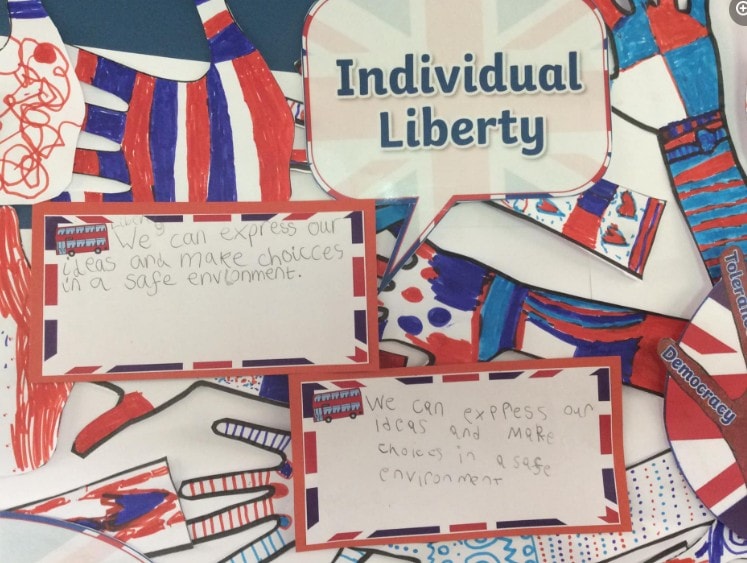 Individual
Liberty
Liberty
We can express our
ideas and make choicces
in a safe envionment.
We can express our
ideas and make
choices in a safe
environment
Tolerance
Democracy